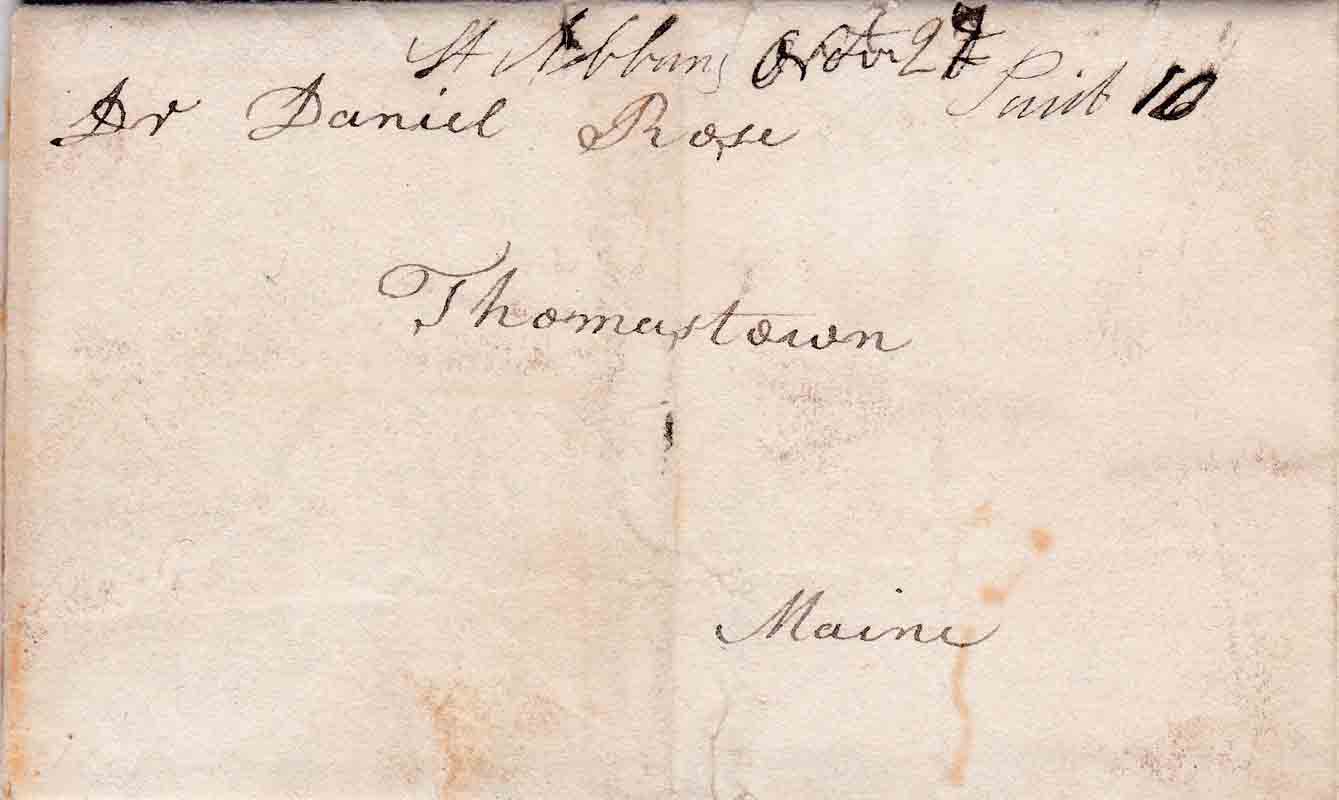 St Albans Octr 27 Paid 10
Dr Daniel Rose
Thomastown
Maine